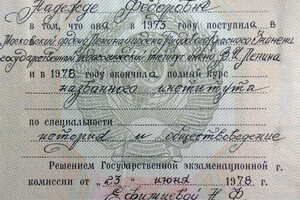 Надежде Федоровне
в том, что она в 1973 году поступила в
Московский ордена Ленина и ордена Трудового Красного Знамени
государственный педагогический институт имени В.И. Ленина
и в 1978 году окончила полный курс
названного института
по специальности
история и обществоведение
Решением Государственной экзаменационной
комиссии от "23" июня 1978 г.
Н Ф